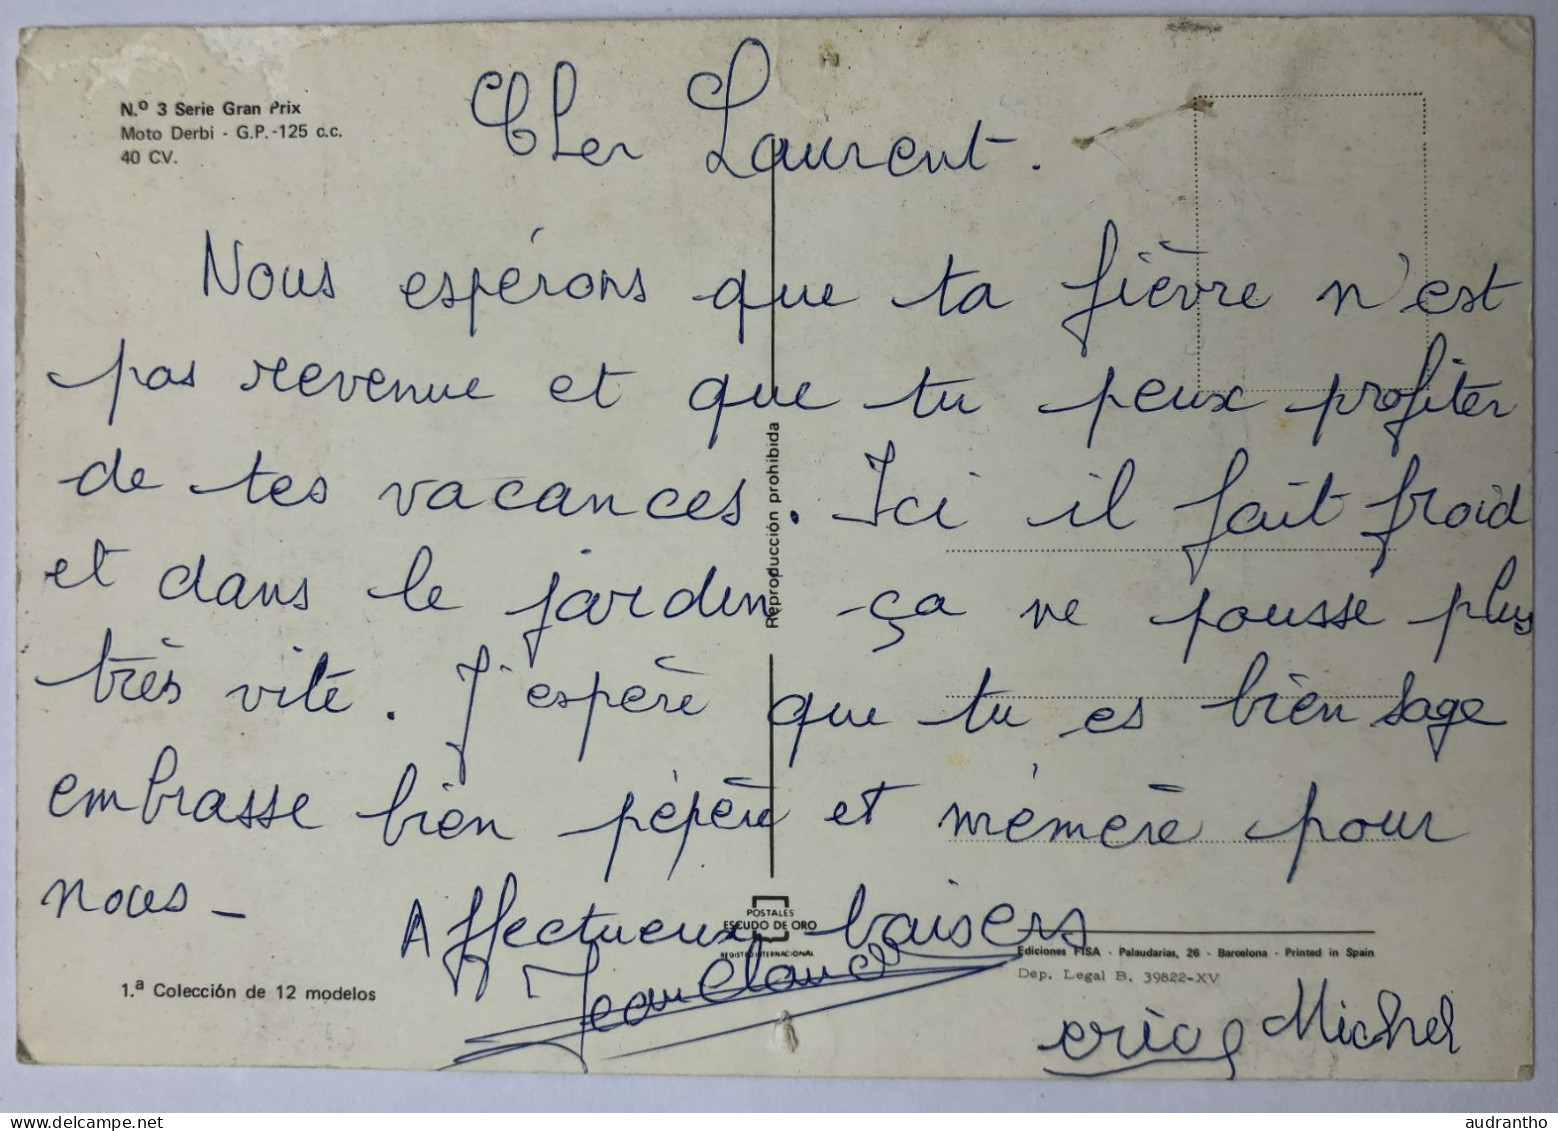 N.º 3 Serie Gran Prix
Moto Derbi - G.P.-125 c.c.
40 CV.
Cher Laurent.
Nous espérons que ta fièvre n'est
pas revenue et que tu peux profiter
de tes vacances. Ici il fait froid
et dans le jardin ça ne pousse plus
très vite. J'espère que tu es bien sage
embrasse bien pépère et mémère pour
nous -
Affectueux baisers
Jean Claude
eric Michel
Reproducción prohibida
POSTALES
ESCUDO DE ORO
REGISTRO INTERNACIONAL
Ediciones FISA - Palaudarias, 26 - Barcelona - Printed in Spain
Dep. Legal B. 39822-XV
1.ª Colección de 12 modelos
audrantho